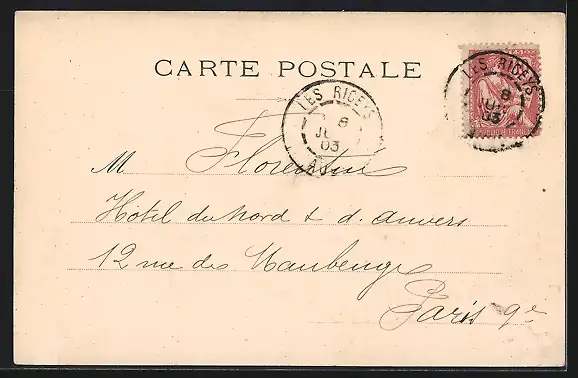 CARTE POSTALE
LES RICEYS
8
03
LES RICEYS
8
03
M Florentin
Hôtel du Nord & d. Anvers
12 rue de Maubeuge
Paris 9e